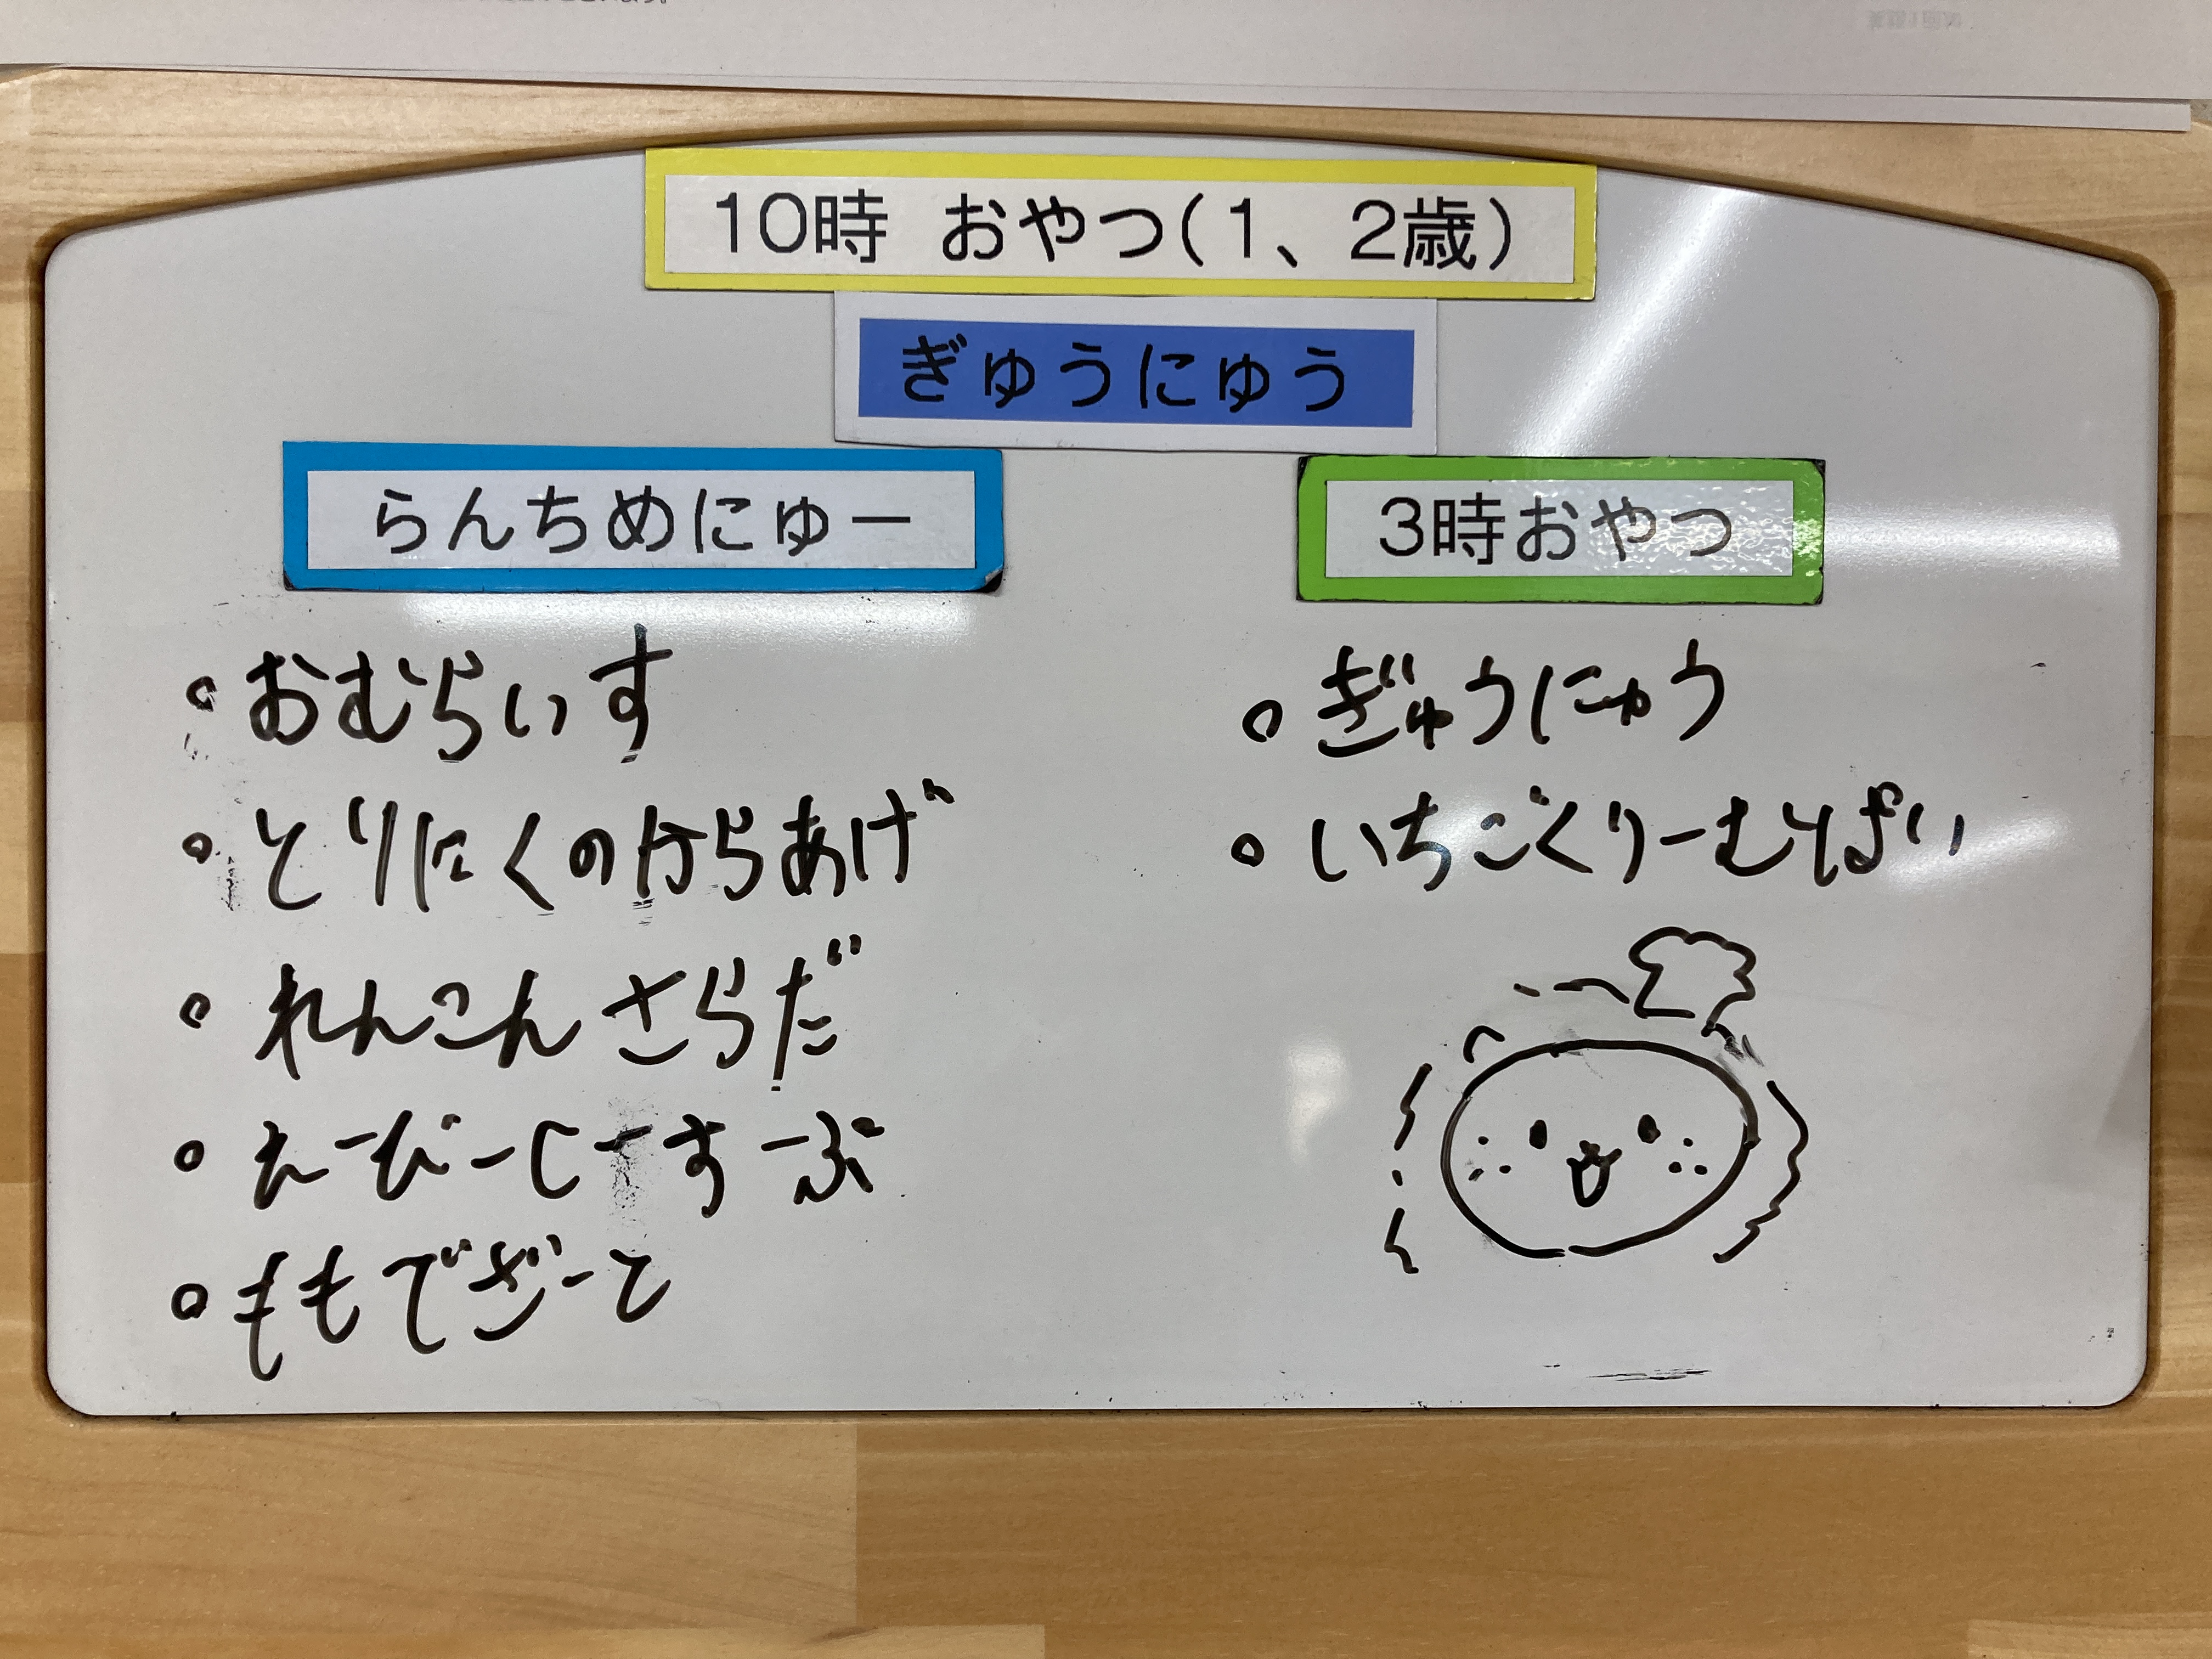 10時 おやつ(1、2歳)
ぎゅうにゅう
らんちめにゅー
・おむらいす
・とりにくのからあげ
・れんこんさらだ
・えーびーしーすーぷ
・ももでざーと
3時おやつ
・ぎゅうにゅう
・いちごくりーむそぱい